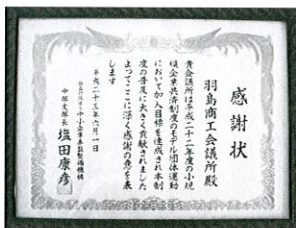 感謝状
羽島商工会議所殿
貴会議所は平成二十二年度の小規
模企業共済制度のモデル団体運動
において加入目標を達成され本制
度の普及に大きく貢献されました
よってここに深く感謝の意を表
します
平成二十三年六月一日
独立行政法人中小企業基盤整備機構
中部支部長 塩田康彦